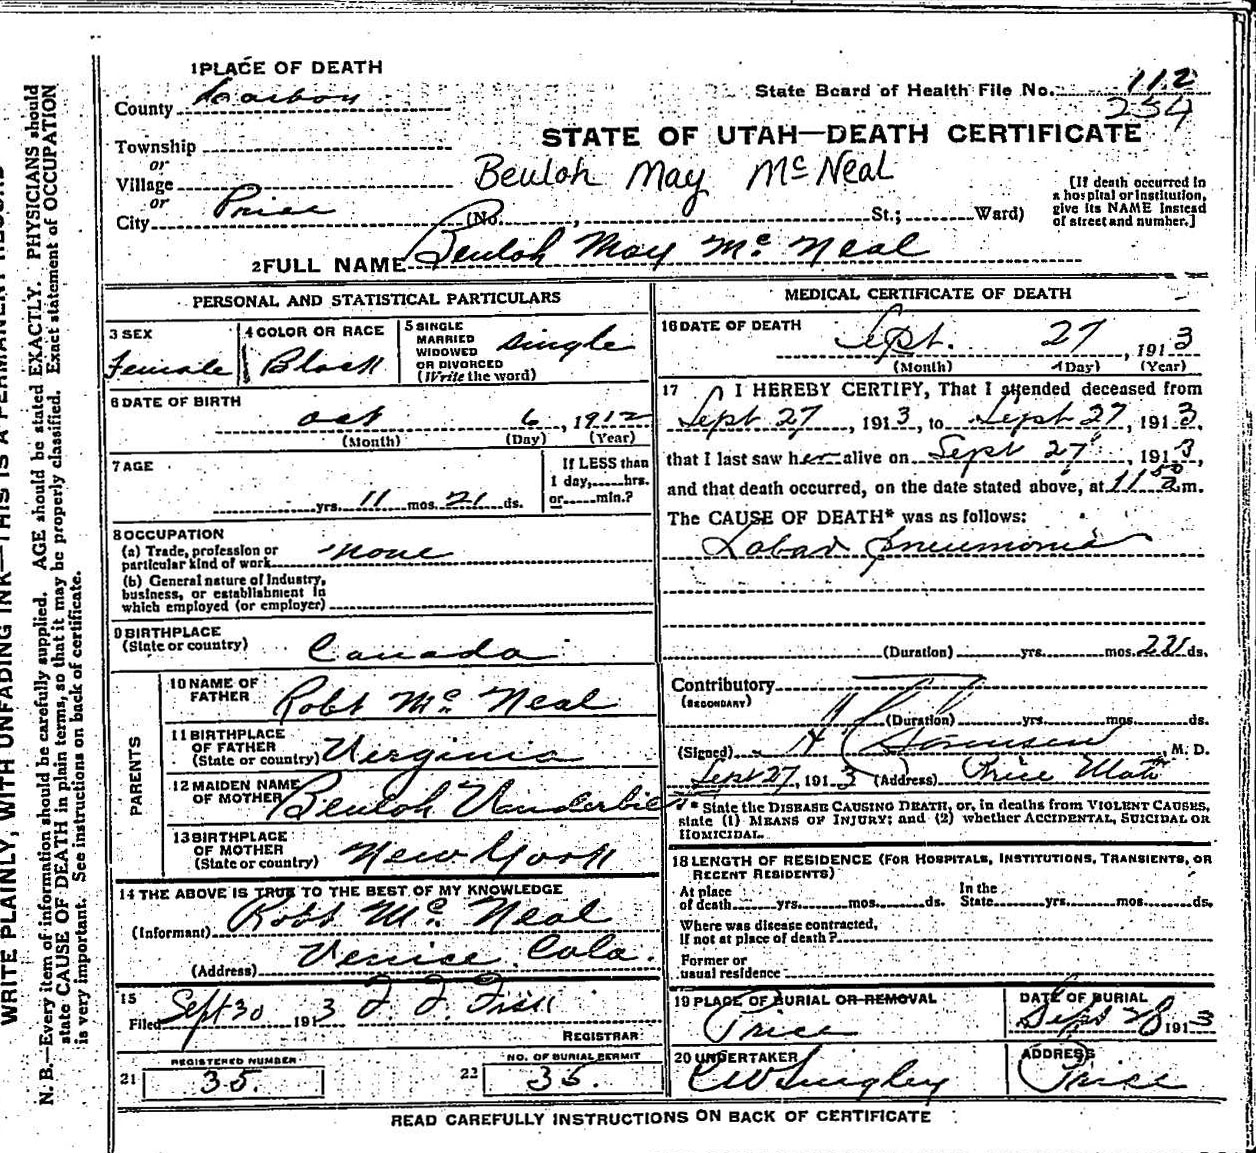 1 PLACE OF DEATH
County Carbon
State Board of Health File No. 112
234
STATE OF UTAH—DEATH CERTIFICATE
Township
or
Village
Beuloh May McNeal
or
City Price (No. , St.; Ward)
[If death occurred in
a hospital or institution,
give its NAME instead
of street and number.]
2 FULL NAME Beuloh May Mc Neal
PERSONAL AND STATISTICAL PARTICULARS
3 SEX
Female
4 COLOR OR RACE
Black
5 SINGLE
MARRIED
WIDOWED
OR DIVORCED
(Write the word)
Single
6 DATE OF BIRTH
Oct 6, 1912
(Month) (Day) (Year)
7 AGE
yrs. 11 mos. 21 ds.
If LESS than
1 day, hrs.
or min.?
8 OCCUPATION
(a) Trade, profession or
particular kind of work none
(b) General nature of Industry,
business, or establishment in
which employed (or employer)
9 BIRTHPLACE
(State or country) Canada
PARENTS
10 NAME OF
FATHER Robt Mc Neal
11 BIRTHPLACE
OF FATHER
(State or country) Verginia
12 MAIDEN NAME
OF MOTHER Beuloh Vanderbilt
13 BIRTHPLACE
OF MOTHER
(State or country) New York
14 THE ABOVE IS TRUE TO THE BEST OF MY KNOWLEDGE
(Informant) Robt Mc Neal
(Address) Venice Colo.
15
Filed Sept 30 1913
REGISTRAR
REGISTERED NUMBER
21 35.
NO. OF BURIAL PERMIT
22 35.
MEDICAL CERTIFICATE OF DEATH
16 DATE OF DEATH
Sept. 27, 1913
(Month) (Day) (Year)
17 I HEREBY CERTIFY, That I attended deceased from
Sept 27, 1913, to Sept 27, 1913,
that I last saw her alive on Sept 27, 1913,
and that death occurred, on the date stated above, at 11 50 a m.
The CAUSE OF DEATH* was as follows:
Lobar pneumonia
(Duration) yrs. mos. ds.
Contributory
(SECONDARY)
(Duration) yrs. mos. ds.
(Signed) , M. D.
Sept 27, 1913 (Address) Price Utah
* State the DISEASE CAUSING DEATH, or, in deaths from VIOLENT CAUSES,
state (1) MEANS OF INJURY; and (2) whether ACCIDENTAL, SUICIDAL OR
HOMICIDAL.
18 LENGTH OF RESIDENCE (FOR HOSPITALS, INSTITUTIONS, TRANSIENTS, OR
RECENT RESIDENTS)
At place
of death yrs. mos. ds.
In the
State yrs. mos. ds.
Where was disease contracted,
If not at place of death?
Former or
usual residence
19 PLACE OF BURIAL OR REMOVAL
Price
DATE OF BURIAL
Sept 28 1913
20 UNDERTAKER
ADDRESS
Price
READ CAREFULLY INSTRUCTIONS ON BACK OF CERTIFICATE
WRITE PLAINLY, WITH UNFADING INK—THIS IS A PERMANENT RECORD
N. B.—Every item of information should be carefully supplied. AGE should be stated EXACTLY. PHYSICIANS should
state CAUSE OF DEATH in plain terms, so that it may be properly classified. Exact statement of OCCUPATION
is very important. See instructions on back of certificate.